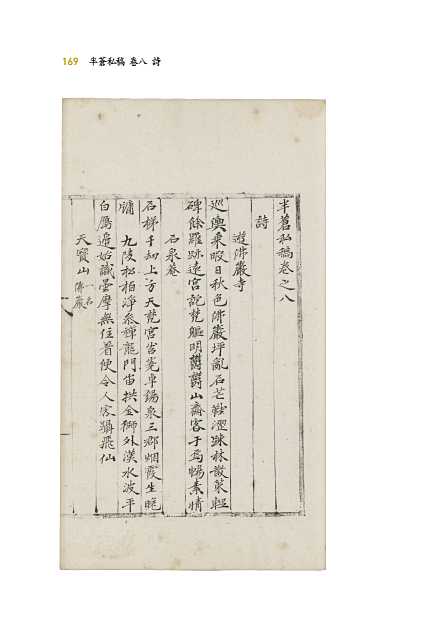 169 半蒼私稿 卷八 詩
半蒼私稿卷之八
詩
遊佛巖寺
巡輿乘暇日秋色佛巖坪亂石芒鞋澀踈林散策輕
碑餘羅跡遠宮說梵軀明鬱鬱山齋客于焉暢素情
石泉菴
石梯千劫上方天梵宮岧嶤卓錫泉三郡烟霞生晩
牖九陵松柏淨叅禪龍門宙拱金獅外漢水波平
白鴈邊始識曇摩無住着便令人客躡飛仙
天寶山一名佛巖